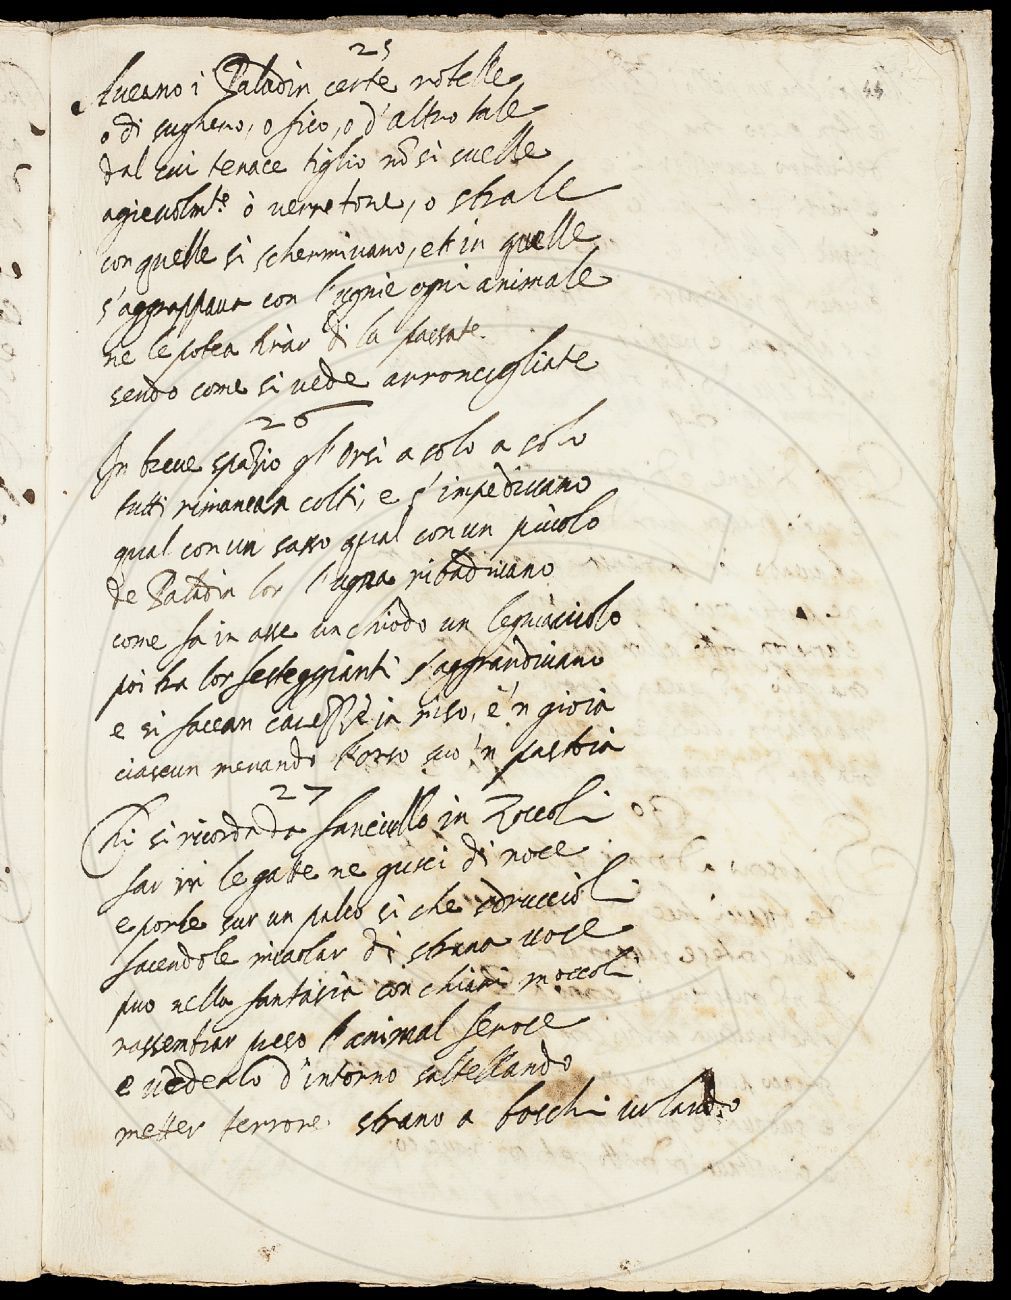 25
44
Aueano i Paladin certe rotelle
o di sughero, o fico, o d'altro tale
dal cui tenace tiglio nō si suelle
ageuolmte ò uerretone, o strale
con quelle si schermiuano, et in quelle
s'aggrappaua con l'ugnie ogni animale
ne le potea tirar di la passate
sendo come si uede arroncigliate
26
In breue spazio gl'Orsi a solo a solo
tutti rimanean colti, e s'impediuano
qual con un sasso qual con un piuolo
de Paladin lor l'ugna ribadiuano
come fa in asse un chiodo un legniaiuolo
poi tra lor festeggianti s'aggrandiuano
e si facean carezze in riso, e 'n gioia
ciascun menando l'orso suo 'n pastoia
27
Chi si ricorda da fanciullo in Zoccoli
far in le gatte ne gusci di noce
e porle sur un palco si che sdruccioli
facendole miaolar di strana uoce
puo nella fantasia con chiari moccoli
rassembrar preso l'animal feroce
e uederlo d'intorno saltellando
metter terrore strano a boschi urlando